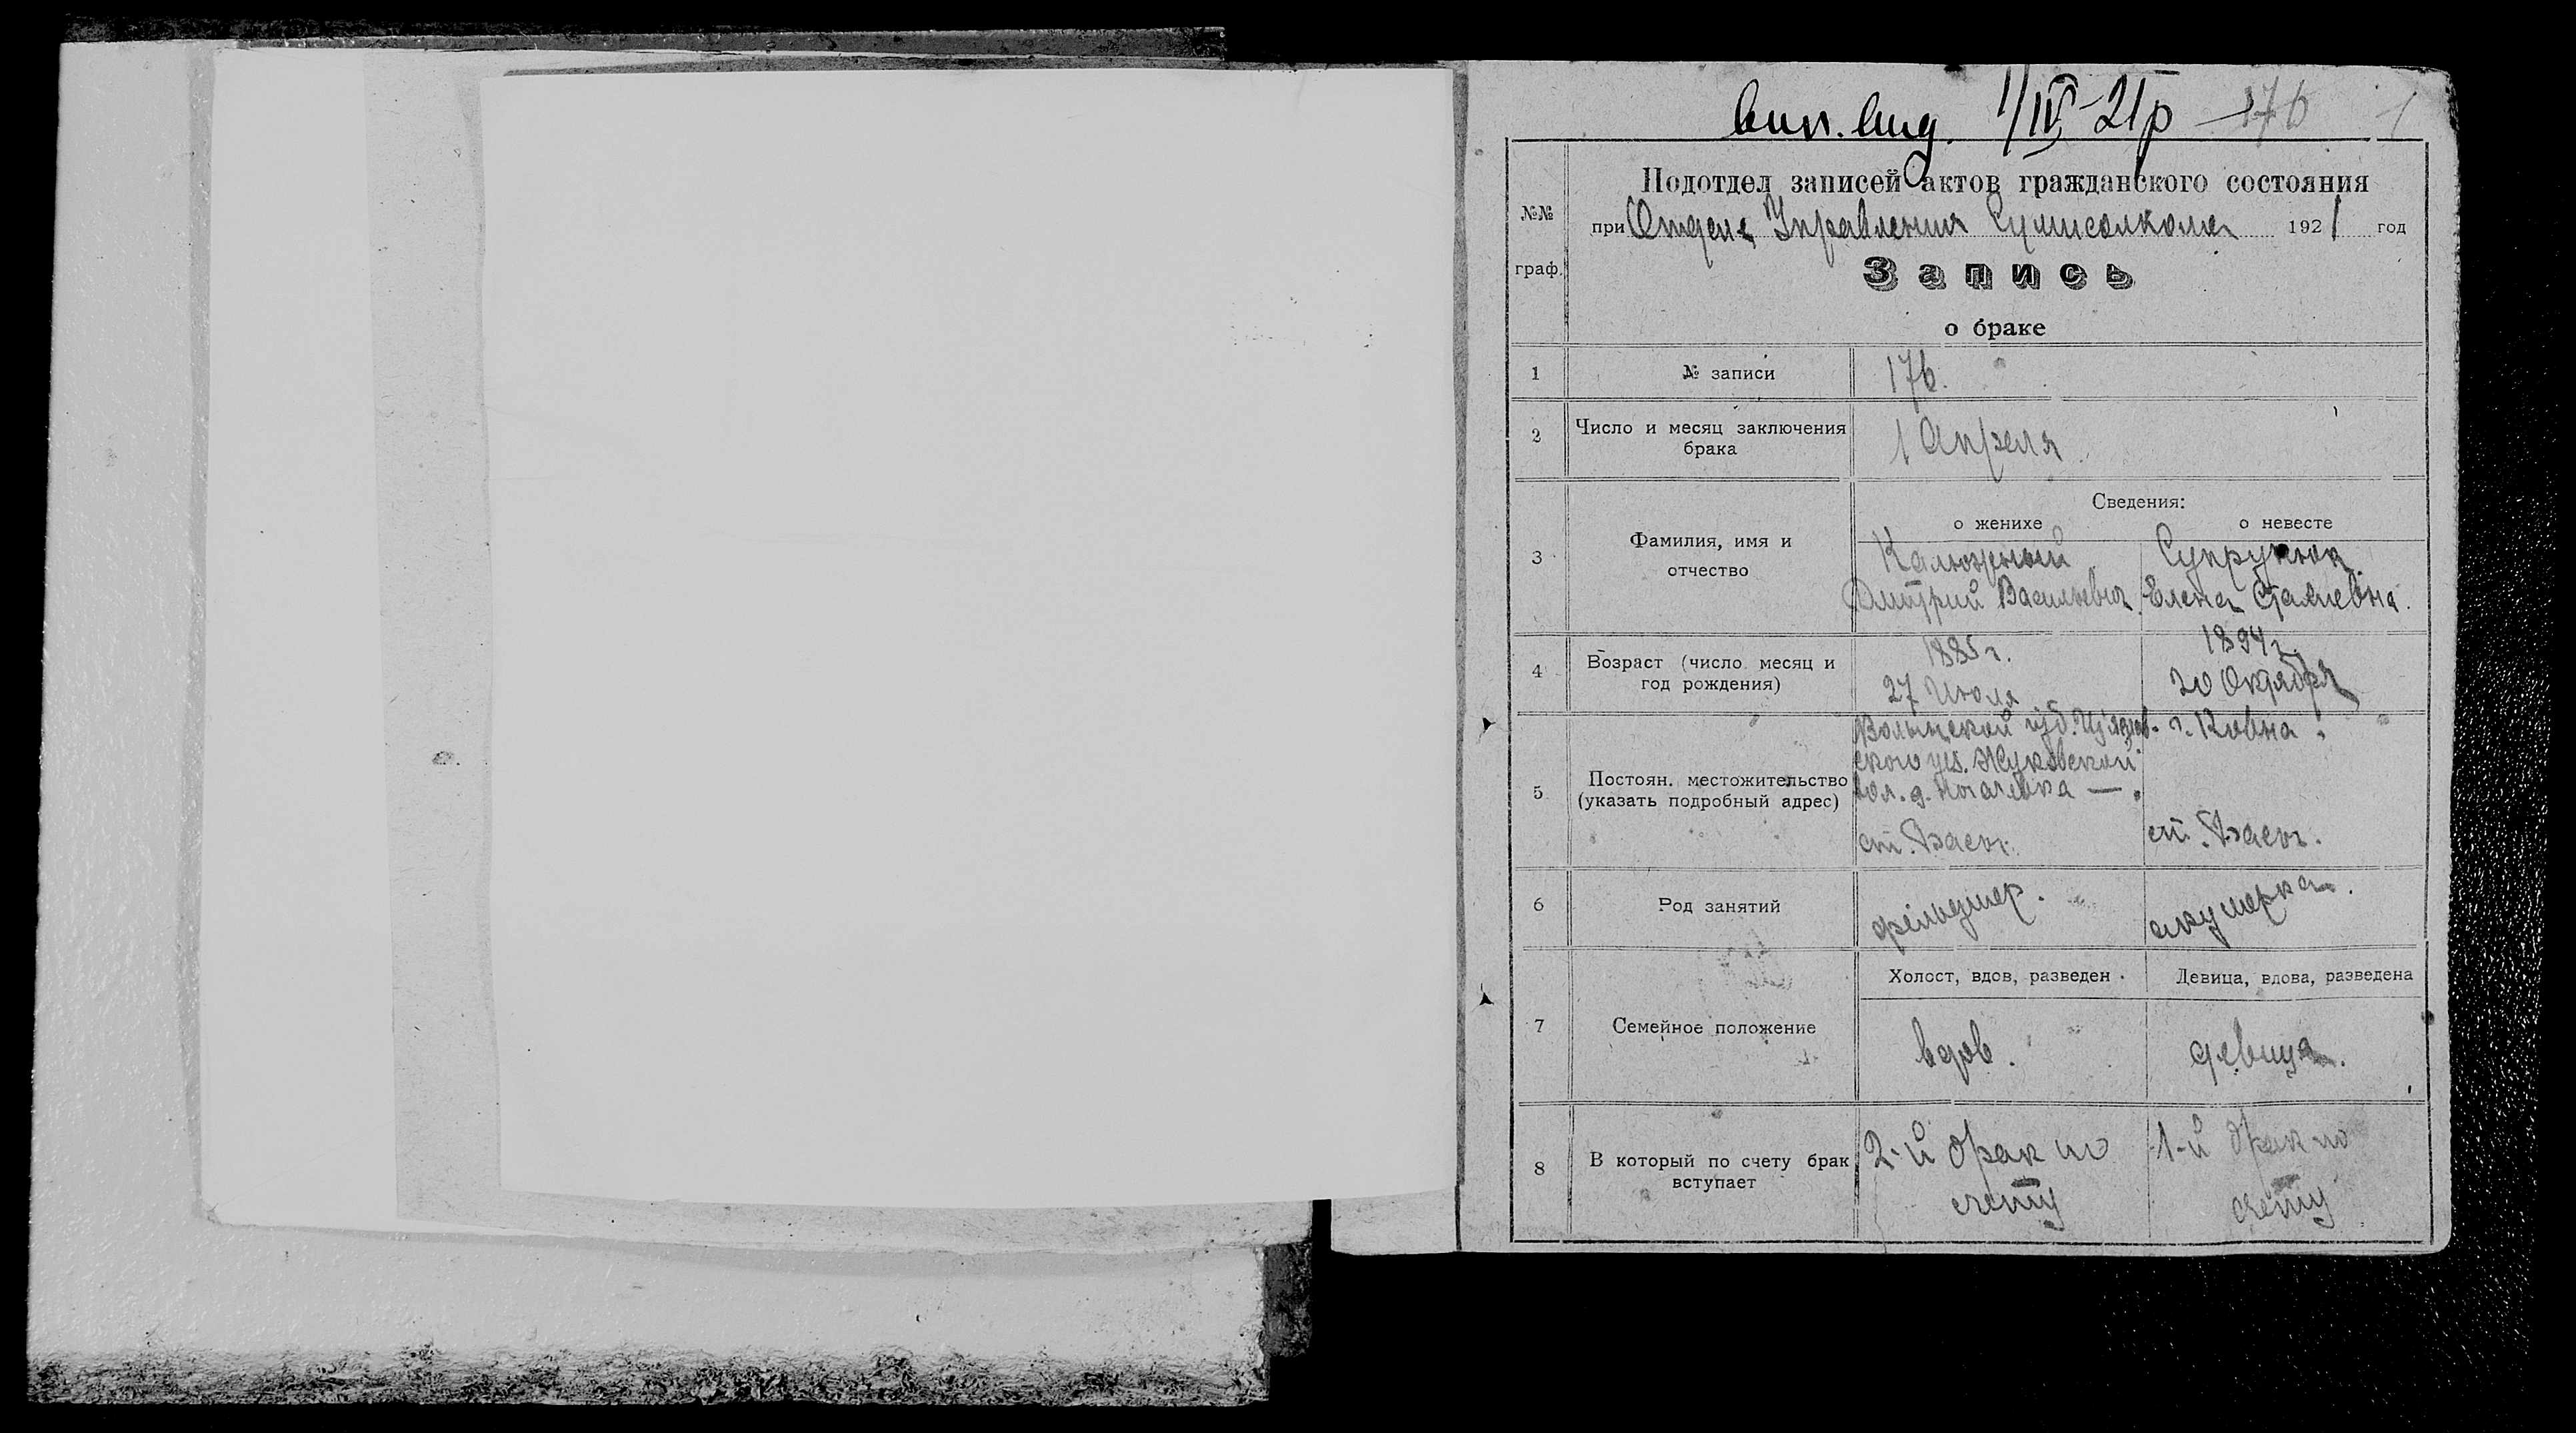 вип. вид. 1/IV-21р 176 1
Подотдел записей актов гражданского состояния
№№
при Отделе Управления Сумисполкома 1921 год
граф.
Запись
о браке
1 № записи 176.
2 Число и месяц заключения 1 Апреля
брака
Сведения:
о женихе о невесте
3 Фамилия, имя и Калюжный Супрунюк
отчество Дмитрий Васильевич Елена
1885 г. 1894 г.
4 Возраст (число месяц и
год рождения) 27 Июля 20 Октября
Волынской губ. Изяслав- г. Ковна.
ского уез. Жуковской
5 Постоян. местожительство вол. д.
(указать подробный адрес)
ст. Басы. ст. Басы.
6 Род занятий фельдшер. акушерка.
Холост, вдов, разведен Девица, вдова, разведена
7 Семейное положение вдов. девица.
8 В который по счету брак 2-й брак по 1-й брак по
вступает счету счету